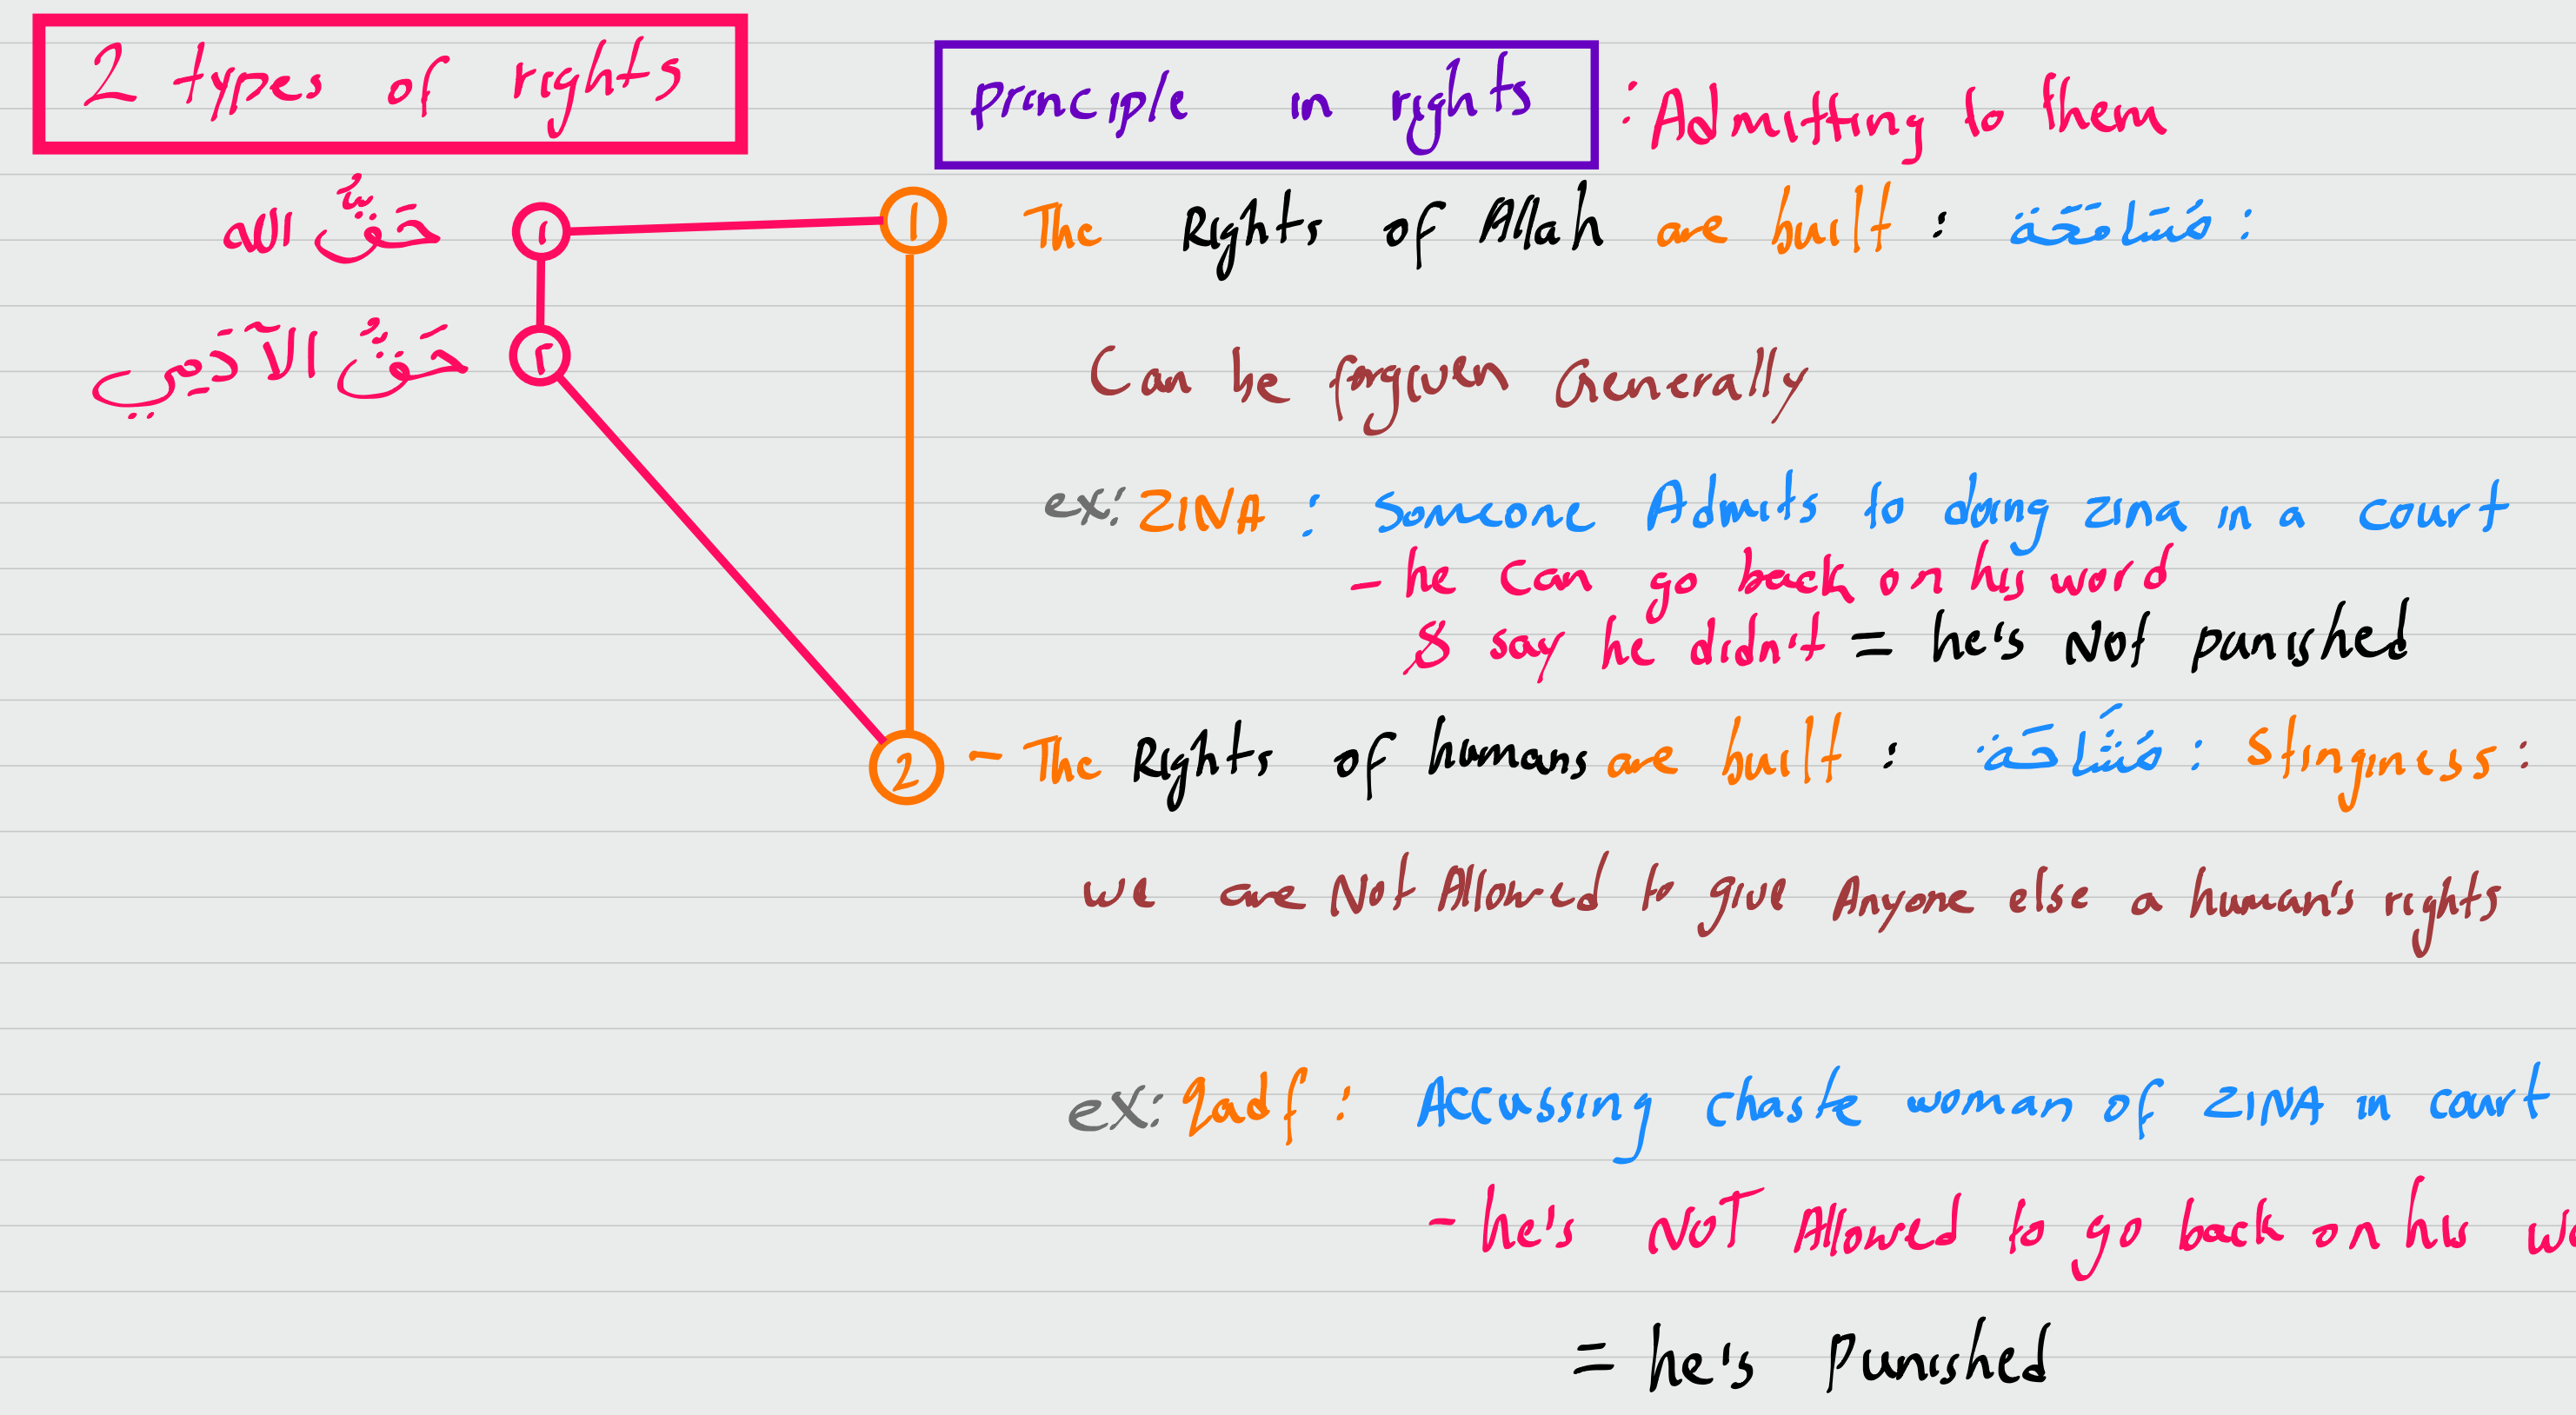 2 types of rights
حَقُّ الله ١
حَقُّ الآدَمِي ٢
principle in rights : Admitting to them
1 The Rights of Allah are built : مُسَامَحَة :
Can be forgiven Generally
ex: ZINA : Someone Admits to doing zina in a court
- he can go back on his word
& say he didn't = he's Not punished
2 - The Rights of humans are built : مُشَاحَّة : Stinginess :
we are Not Allowed to give Anyone else a human's rights
ex: Qadf : Accussing chaste woman of ZINA in court
- he's NOT Allowed to go back on his
= he's Punished